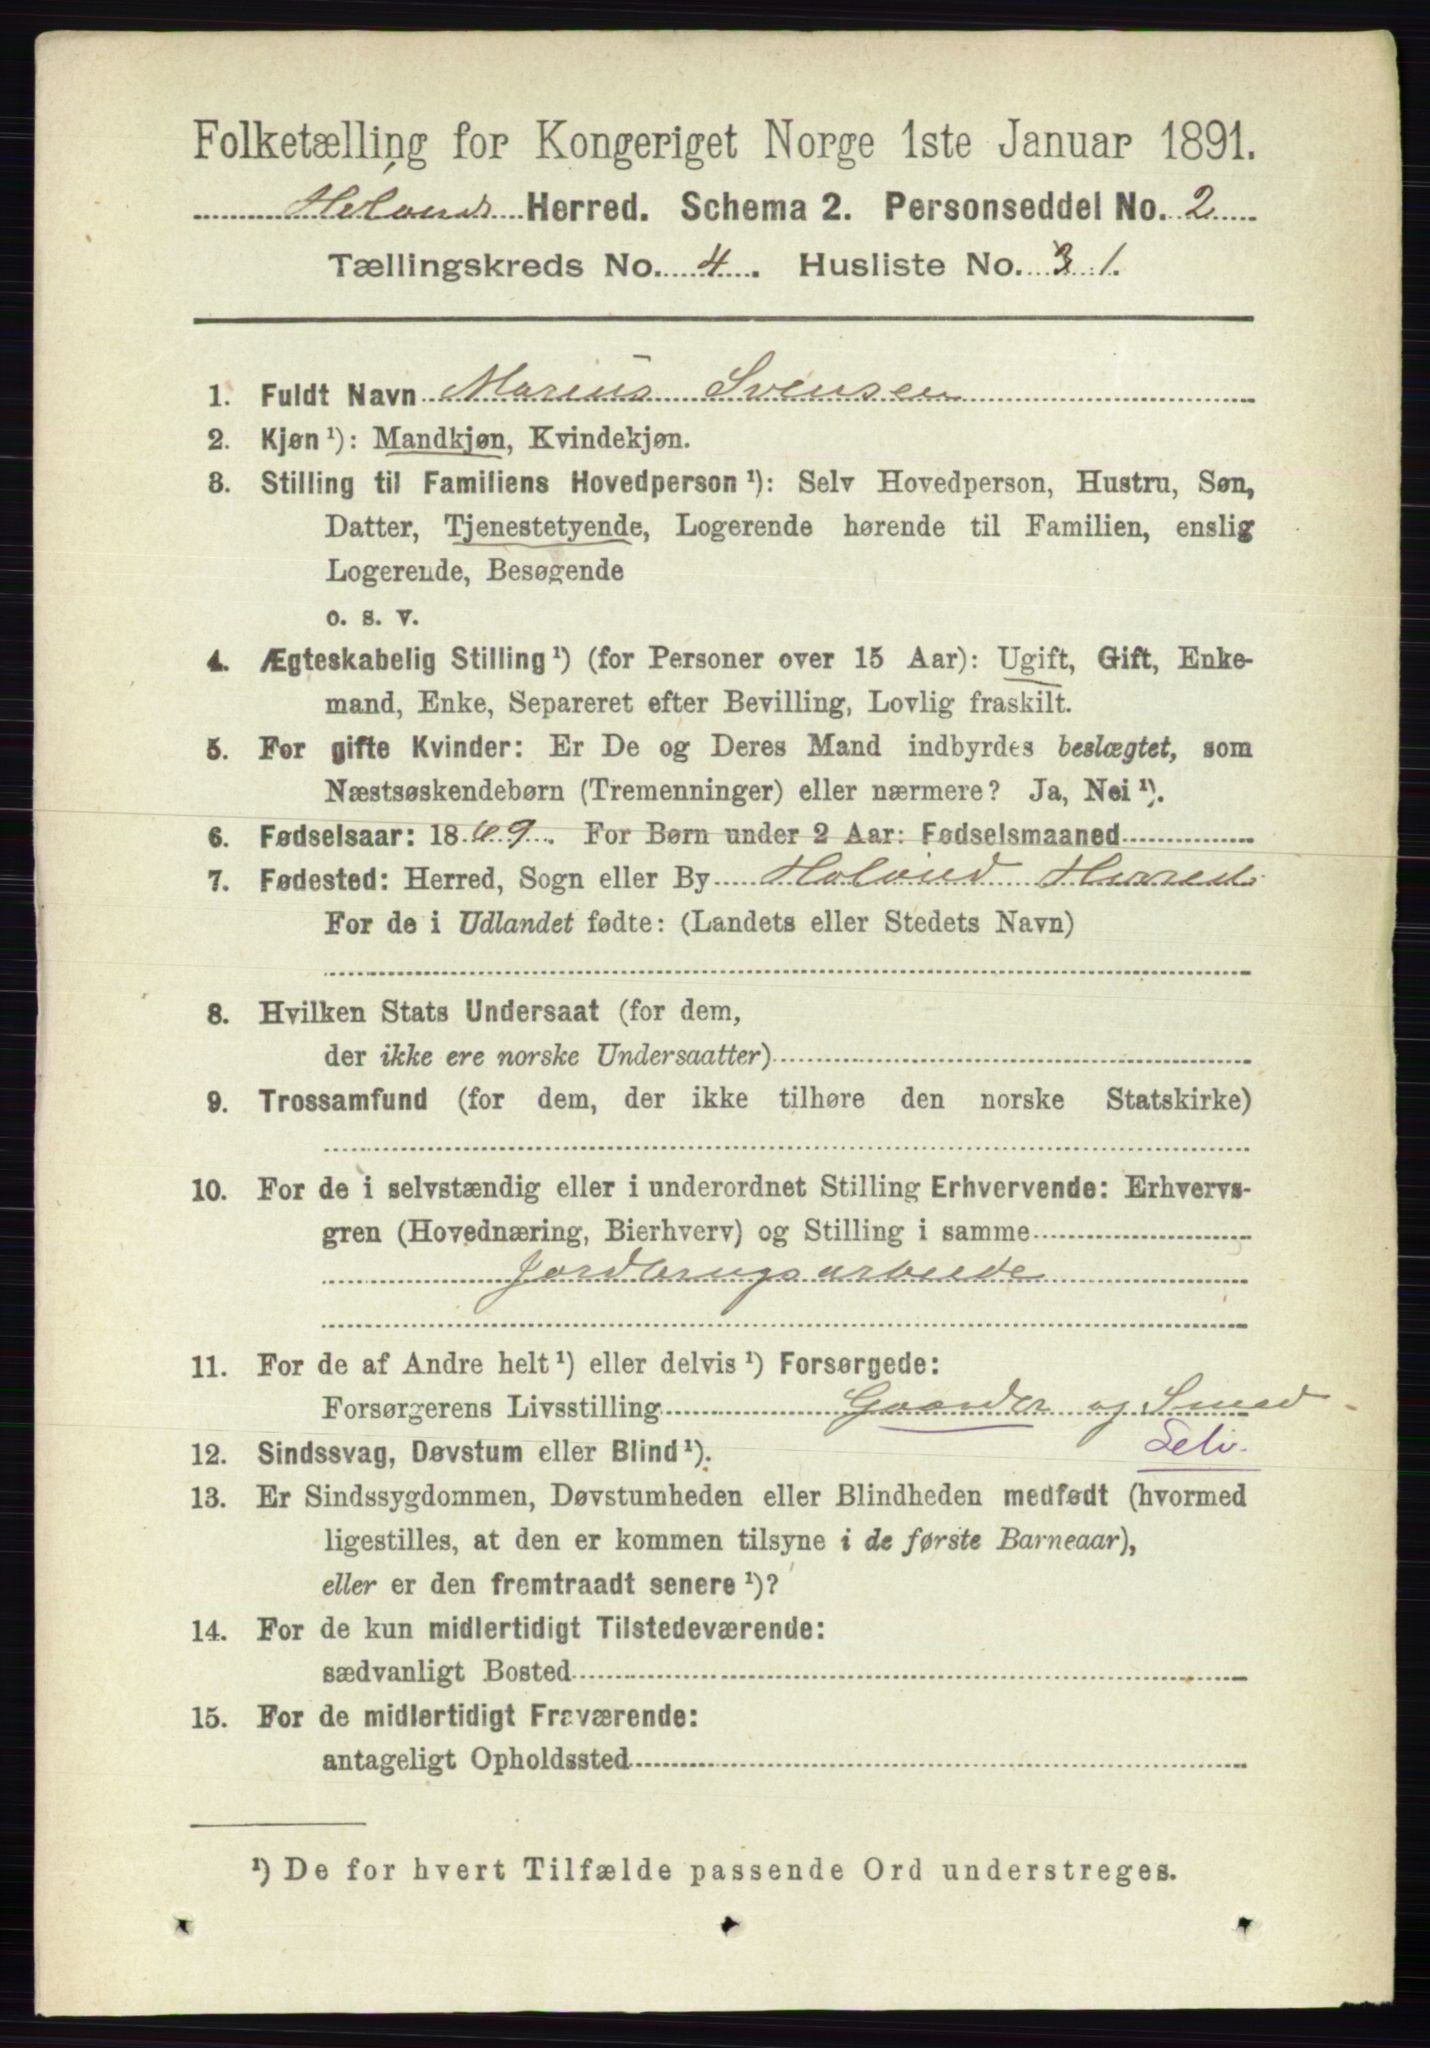 Folketælling for Kongeriget Norge 1ste Januar 1891.
Herred. Schema 2. Personseddel No. 2
Tællingskreds No. 4. Husliste No. 31.
1. Fuldt Navn Marius Svensen
2. Kjøn ¹): Mandkjøn, Kvindekjøn.
3. Stilling til Familiens Hovedperson ¹): Selv Hovedperson, Hustru, Søn,
Datter, Tjenestetyende, Logerende hørende til Familien, enslig
Logerende, Besøgende
o. s. v.
4. Ægteskabelig Stilling ¹) (for Personer over 15 Aar): Ugift, Gift, Enke-
mand, Enke, Separeret efter Bevilling, Lovlig fraskilt.
5. For gifte Kvinder: Er De og Deres Mand indbyrdes beslægtet, som
Næstsøskendebørn (Tremenninger) eller nærmere? Ja, Nei ¹).
6. Fødselsaar: 1869. For Børn under 2 Aar: Fødselsmaaned
7. Fødested: Herred, Sogn eller By Holand Herred
For de i Udlandet fødte: (Landets eller Stedets Navn)
8. Hvilken Stats Undersaat (for dem,
der ikke ere norske Undersaatter)
9. Trossamfund (for dem, der ikke tilhøre den norske Statskirke)
10. For de i selvstændig eller i underordnet Stilling Erhvervende: Erhvervs-
gren (Hovednæring, Bierhverv) og Stilling i samme
Jordbrugsarbeide
11. For de af Andre helt ¹) eller delvis ¹) Forsørgede:
Forsørgerens Livsstilling Gaardbr og Smed
Selv.
12. Sindssvag, Døvstum eller Blind ¹).
13. Er Sindssygdommen, Døvstumheden eller Blindheden medfødt (hvormed
ligestilles, at den er kommen tilsyne i de første Barneaar),
eller er den fremtraadt senere ¹)?
14. For de kun midlertidigt Tilstedeværende:
sædvanligt Bosted
15. For de midlertidigt Fraværende:
antageligt Opholdssted
¹) De for hvert Tilfælde passende Ord understreges.